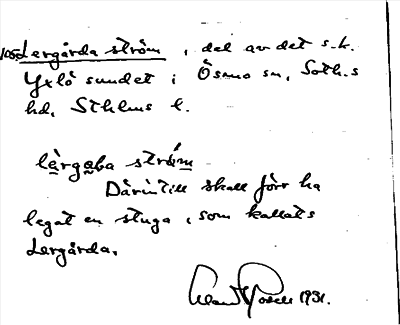 Lergårda ström, del av det s.k.
Yxlö sundet i Ösmo sn, Soth.s
hd, Sthlms l.
lèrgaba strö́m
Därintill skall förr ha
legat en stuga, som kallats
Lergårda.
1931.